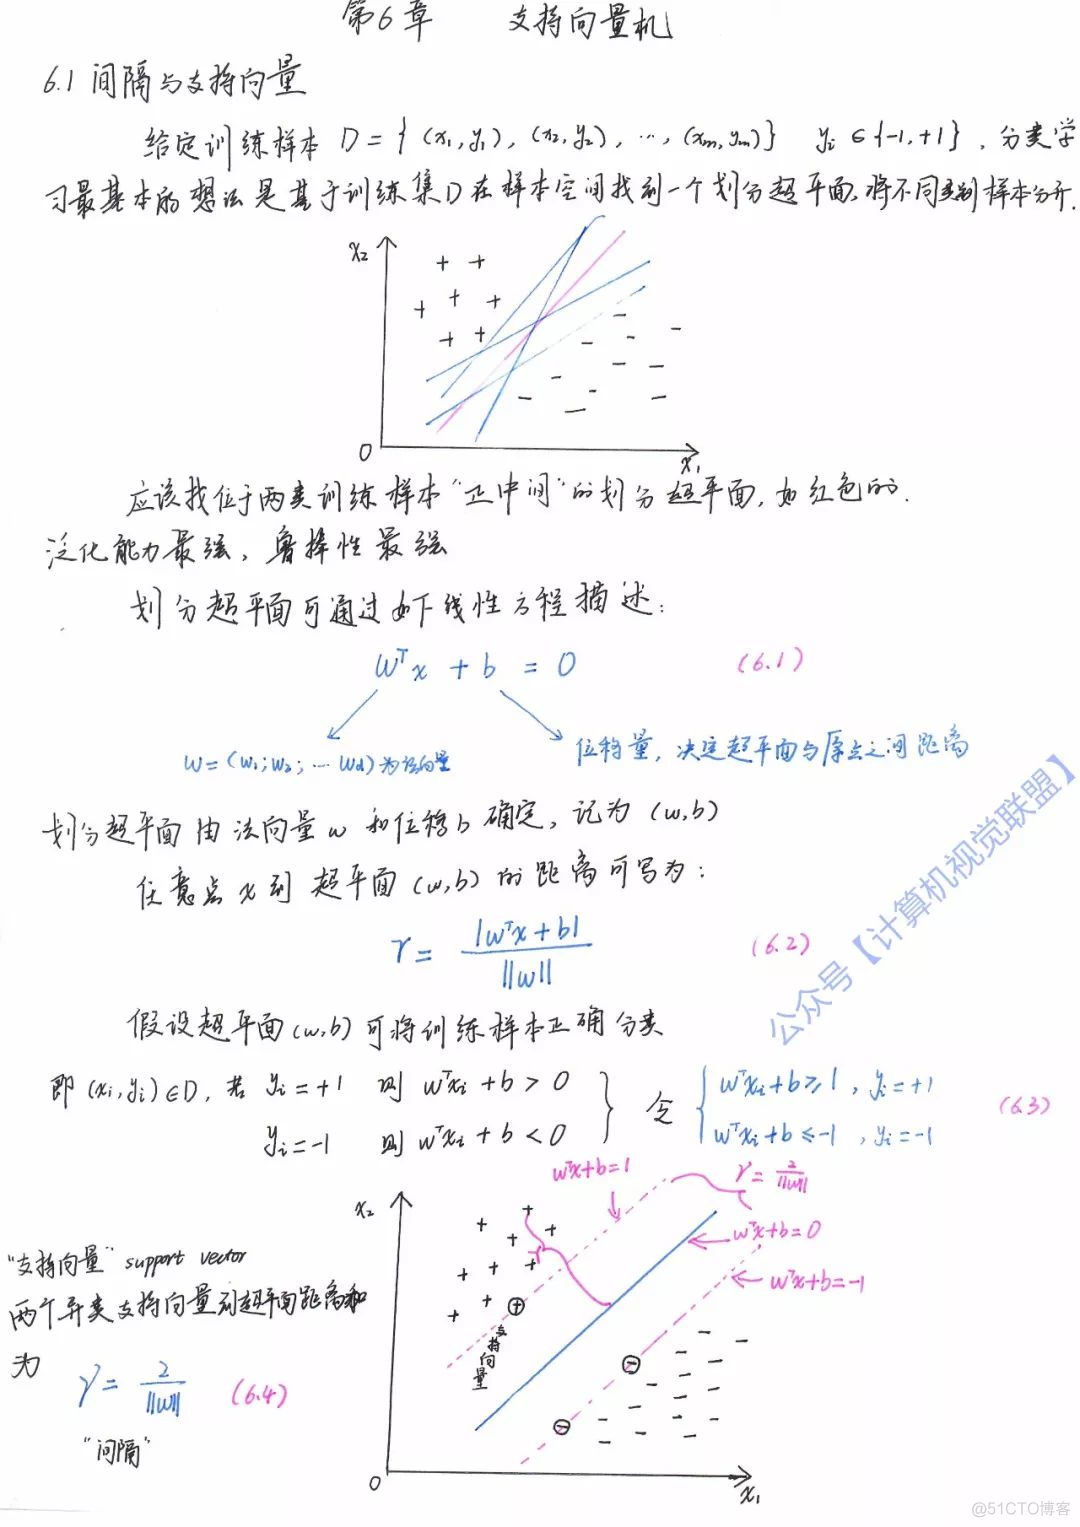 第6章 支持向量机
6.1 间隔与支持向量
给定训练样本 D={(x₁,y₁),(x₂,y₂),…,(xₘ,yₘ)} yᵢ∈{-1,+1}, 分类学
习最基本的想法是基于训练集D在样本空间找到一个划分超平面,将不同类别样本分开.
x₂
+ +
+ + +
+ +
O
x₁
应该找位于两类训练样本“正中间”的划分超平面,如红色的.
泛化能力最强,鲁棒性最强
划分超平面可通过如下线性方程描述:
wᵀx + b = 0 (6.1)
w=(w₁;w₂;…wd)为法向量
位移量,决定超平面与原点之间距离
划分超平面由法向量w和位移b确定,记为(w,b)
任意点x到超平面(w,b)的距离可写为:
r = |wᵀx+b| / ||w|| (6.2)
假设超平面(w,b)可将训练样本正确分类
即(xᵢ,yᵢ)∈D,若 yᵢ=+1 则 wᵀxᵢ+b>0 } 令 { wᵀxᵢ+b≥1, yᵢ=+1 (6.3)
yᵢ=-1 则 wᵀxᵢ+b<0 wᵀxᵢ+b≤-1, yᵢ=-1
wᵀx+b=1
γ= 2/||w||
x₂
wᵀx+b=0
wᵀx+b=-1
“支持向量” support vector
两个异类支持向量到超平面距离和
为
γ= 2/||w|| (6.4)
“间隔”
支持向量
O
x₁
公众号【计算机视觉联盟】
@51CTO博客